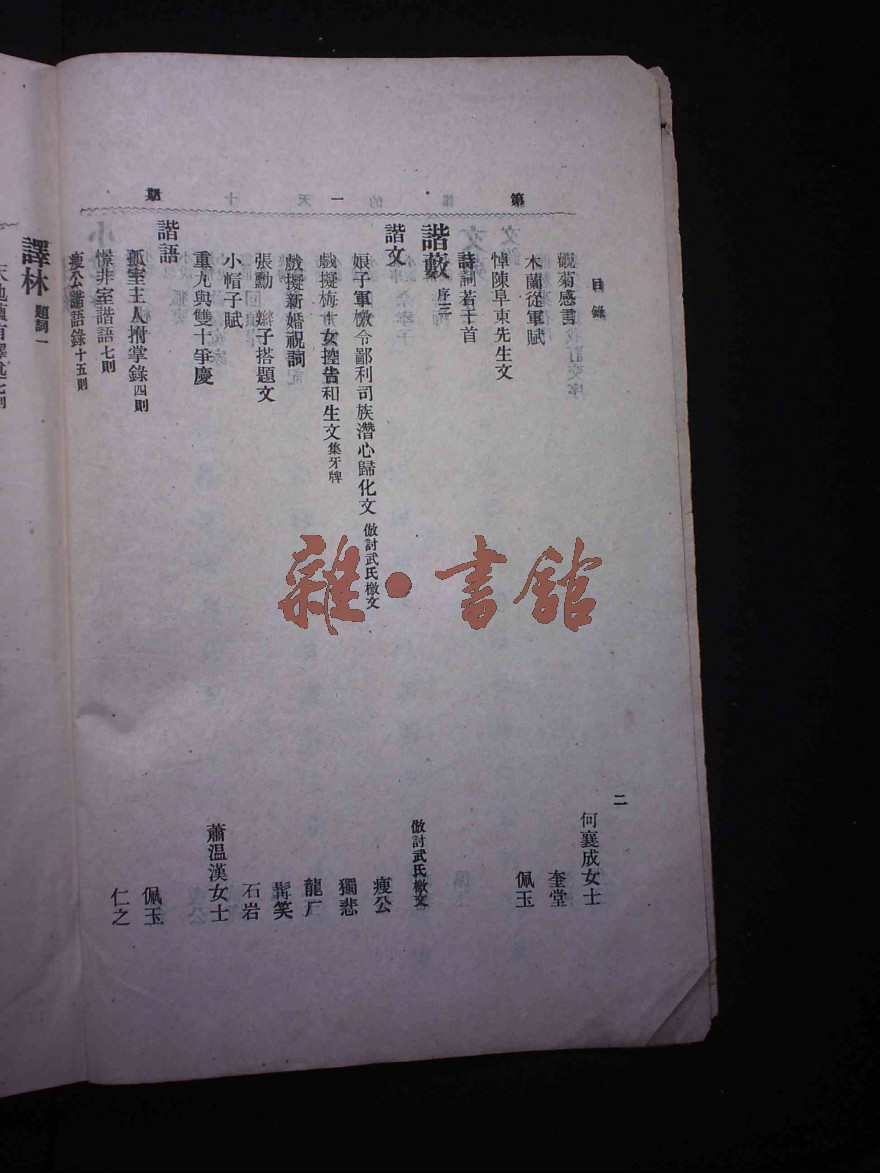 第一期
目錄
二
覩菊感書 何襄成女士
木蘭從軍賦 奎堂
悼陳阜東先生文 佩玉
詩詞若干首
諧藪 序三
諧文
娘子軍檄令鄙利司族潛心歸化文 倣討武氏檄文 瘦公
倣討武氏檄文
戲擬梅士女控告和生文 集牙牌 獨悲
戲擬新婚祝詞 龍厂
張勳辮子搭題文 髯笑
小帽子賦 石岩
重九與雙十爭慶 蕭温漢女士
諧語
孤室主人拊掌錄 四則 佩玉
懞非室諧語 七則 仁之
瘦公諧語錄 十五則
譯林 題詞一
雜·書館